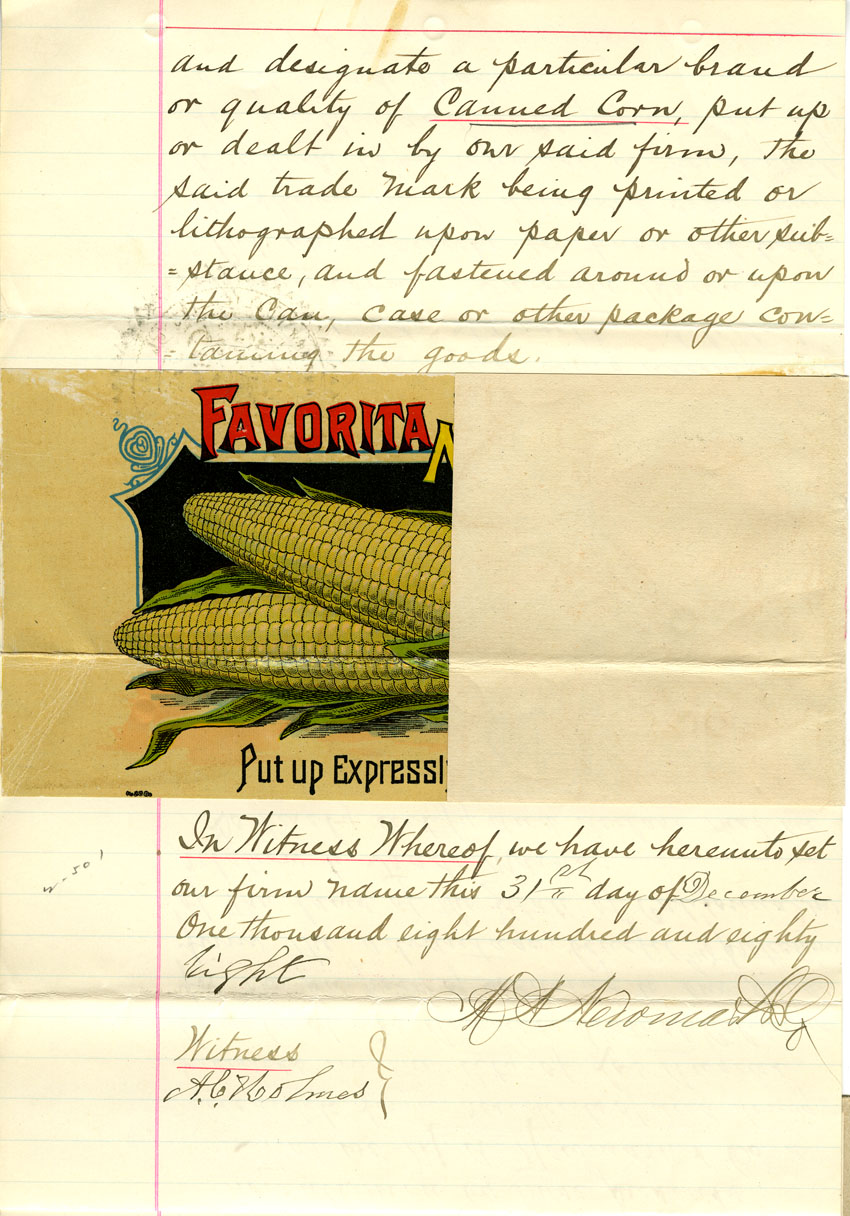 and designate a particular brand
or quality of Canned Corn, put up
or dealt in by our said firm, the
said trade mark being printed or
lithographed upon paper or other sub=
=stance, and fastened around or upon
the Can, case or other package con=
=taining the goods.
FAVORITA
Put up Expressl
In Witness Whereof, we have hereunto set
our firm name this 31st day of December
One thousand eight hundred and eighty
eight
Witness
A.C. Holmes